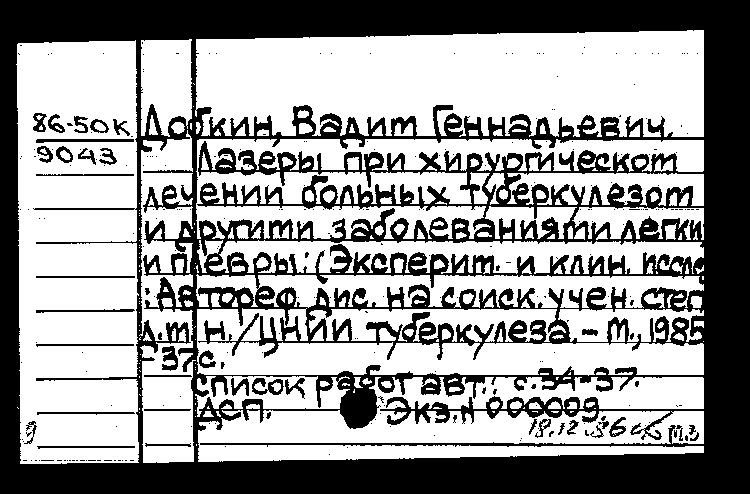 86-50К Добкин, Вадим Геннадьевич.
9043 Лазеры при хирургическом
лечении больных туберкулезом
и другими заболеваниями легки
и плевры: (Эксперим. и клин. иссле
: Автореф. дис. на соиск. учен. степ
д.м.н./ЦНИИ туберкулеза. – М., 1985
– 37 с.
Список работ авт.: с.34-37.
ДСП. Экз.N 000009.
9 18.12.86 М.З